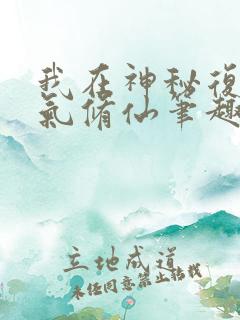 我在神秘復
氣脩仙筆趣
立地成道
未经同意禁止转载